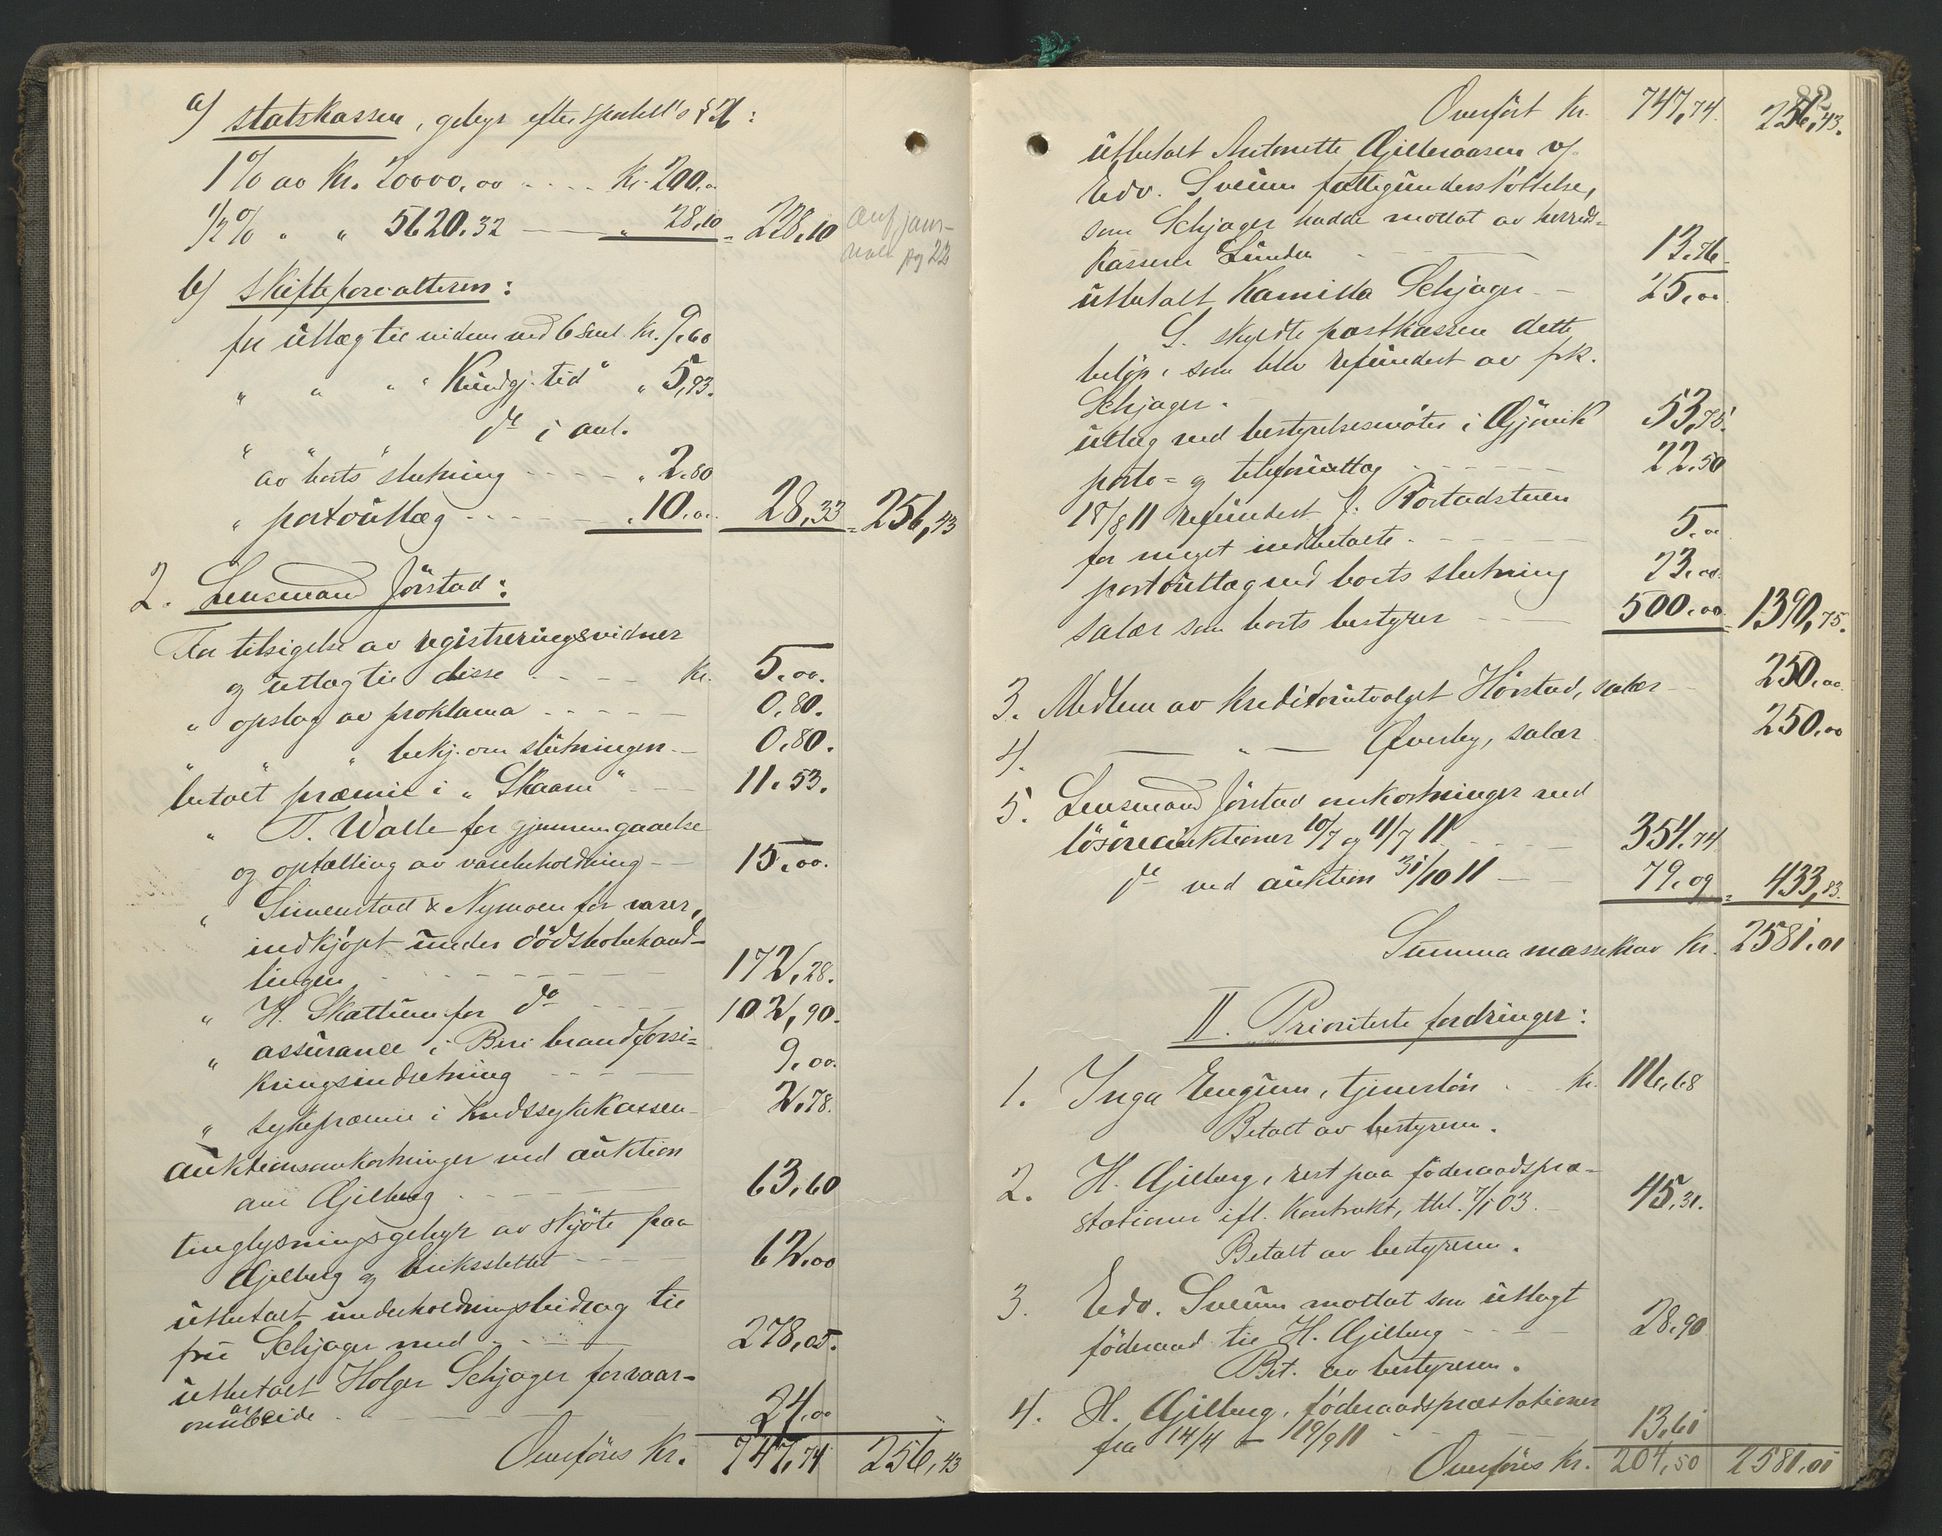 a) statskassen, gebyr efter sportell's § 26:
1 % av Kr. 20000.00 - - - - Kr. 200.00
1/2 % " " 5620.32 - - - - " 28.10 = 228.10
pag 22
b) skifteforvalteren:
for utlæg til vidner ved 6 saml. Kr. 9.60
" " " "Kundgj. tid" " 5.93
" " do i anl.
av boets slutning - - - - " 2.80
" portoutlæg - - - - " 10.00 28,33 = 256,43
2. Lensmand Jørstad:
For tilsigelse av registreringsvidner
og utlæg til disse - - - - Kr. 5.00.
" opslag av proklama - - - - 0.80.
" " " bekj. om slutningen - 0.80.
betalt præmie i "Skaani" - - 11.53.
" T. Walle for gjennemgaaelse
og optælling av varebeholdning - - 15.00.
" Simenstad & Nymoen for varer,
indkjøpt under dødsbobehand-
lingen - - - - 172,28.
" H. Skattum for do - - - - 102,90.
" assurance i Biri brandforsi-
kringsindretning - - - - 9.00.
" sykepræmie i kredssykekassen - 2.78.
auktionsomkostninger ved auktion
over Gjilberg - - - - 63,60
tinglysningsgebyr av skjøte paa
Gjilberg og Eriksslettet - - - 62.00
utbetalt underholdningsbidrag til
fru Schjager med - - - - 278,05.
utbetalt Holger Schjager for vaar-
onnarbeide - - - - 24.00
Overføres Kr. 747,74 256,43
Overført Kr. 747,74. 256,43.
utbetalt Antonette Gjilderaasen v/
Edv. Sveum fattigunderstøttelse,
som Schjager hadde mottat av herreds-
kasserer Lunder - - - - 13.76
utbetalt Kamilla Schjager - - 25.00
S. skyldte postkassen dette
beløp, som blev refundert av frk.
Schjager.
utlæg ved bestyrelsesmøter i Gjøvik 53,75.
porto- og telefonutlæg - - - - 22.50
18/8 11 refundert J. Rostadstuen
for meget indbetalte - - - - 5.00
portoutlæg ved boets slutning 23.00
salær som boets bestyrer - - - - 500.00 = 1390,75.
3. Medlem av kreditorutvalget Hørstad, salær - 250.00
4. — " — Øverby, salær 250.00
5. Lensmand Jørstad omkostninger ved
løsøreauktioner 10/7 og 11/7 11 - - - - 354.74
do ved auktion 31/10 11 - - 79.09 = 433,83.
Summa massekrav Kr. 2581.01
II. Prioriterte fordringer:
1. Inga Engum, tjenerløn - - Kr. 116,68
Betalt av bestyreren.
2. H. Gjilberg, rest paa føderaadspræ-
stationer ifl. kontrakt, thl. 7/1 03. - 45,31.
Betalt av bestyreren.
3. Edv. Sveum mottat som utlagt
føderaad til H. Gjilberg - - - - 28.90
Bet. av bestyreren.
4. H. Gjilberg, føderaadspræstationer
fra 14/4 - 19/9 11 - - - - 13,61
Overføres Kr. 204,50 2581.01